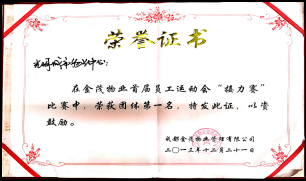 荣誉证书
中心：
在金茂物业首届员工运动会“接力赛”
比赛中，荣获团体第一名，特发此证，以资
鼓励。
成都金茂物业管理有限公司
二〇一三年十二月二十一日